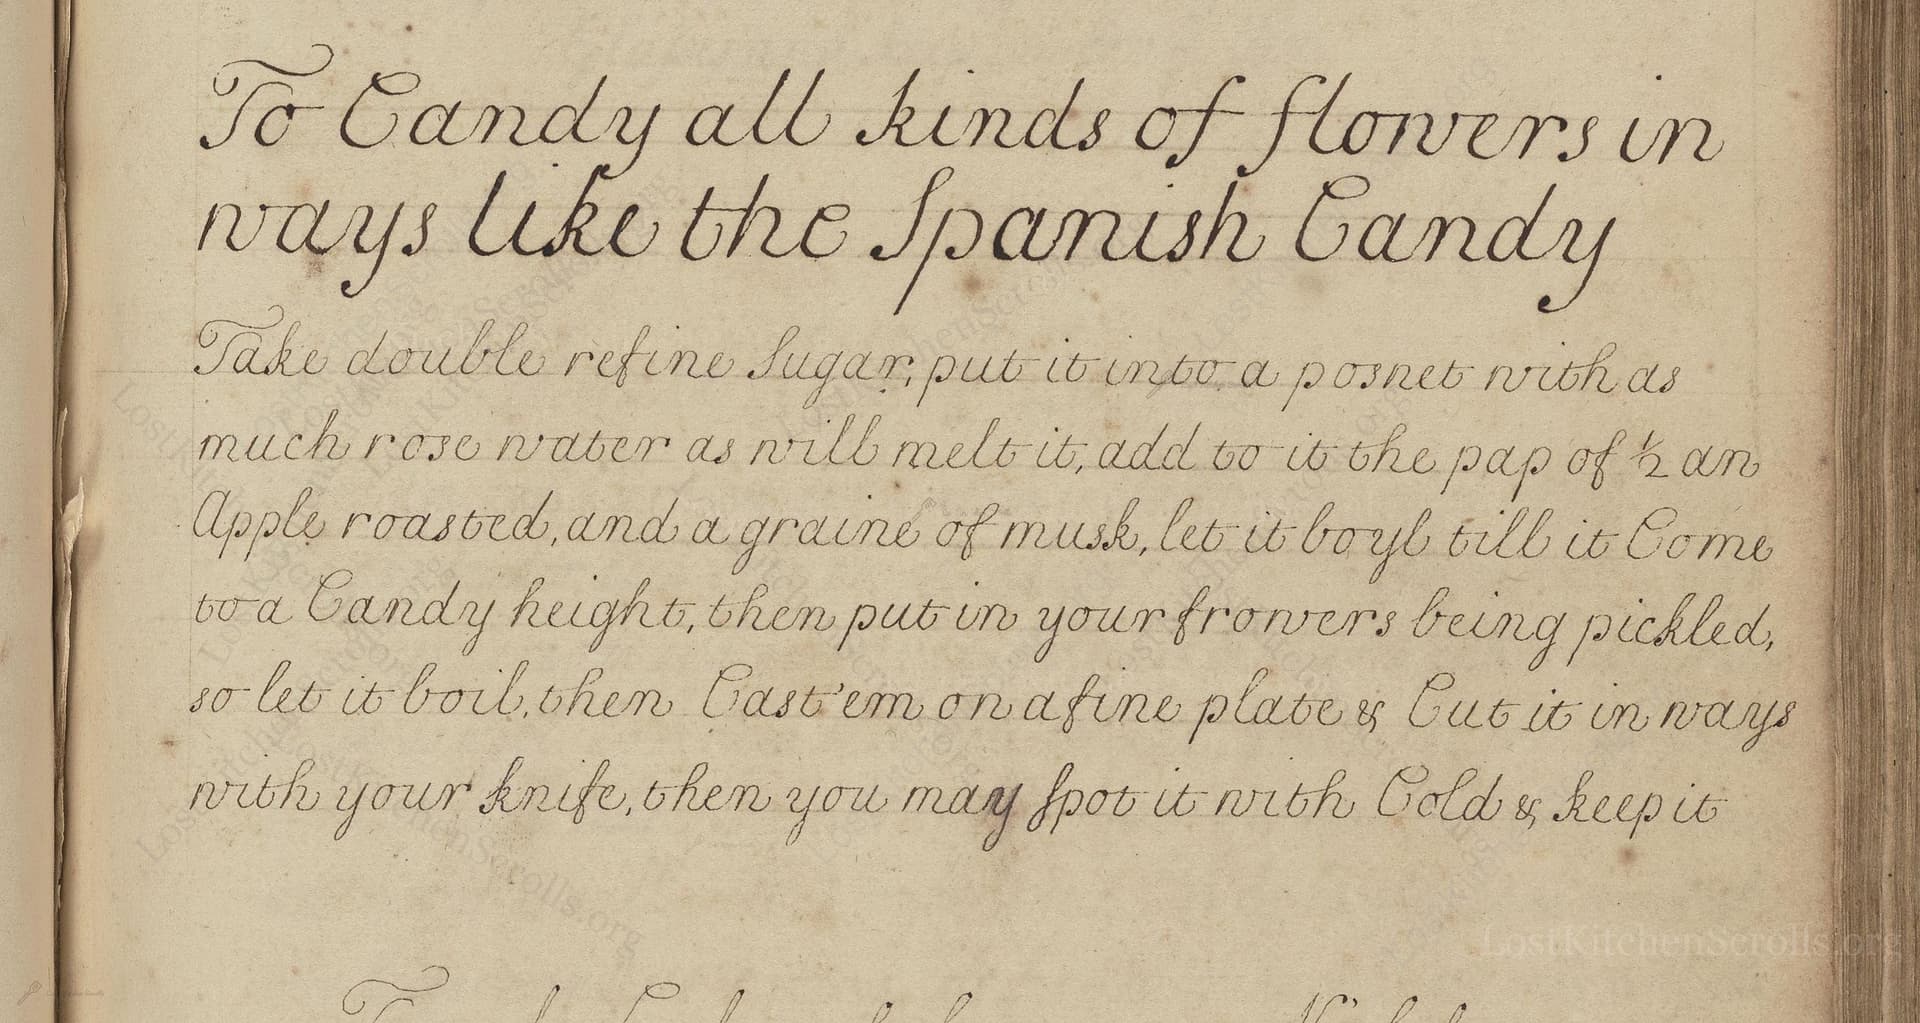 To Candy all kinds of flowers in
ways like the Spanish Candy
Take double refine Sugar, put it into a posnet with as
much rose water as will melt it, add to it the pap of ½ an
Apple roasted, and a graine of musk, let it boyl till it Come
to a Candy height, then put in your frowers being pickled,
so let it boil, then Cast'em on a fine plate & Cut it in ways
with your knife, then you may spot it with Cold & keep it
LostKitchenScrolls.org